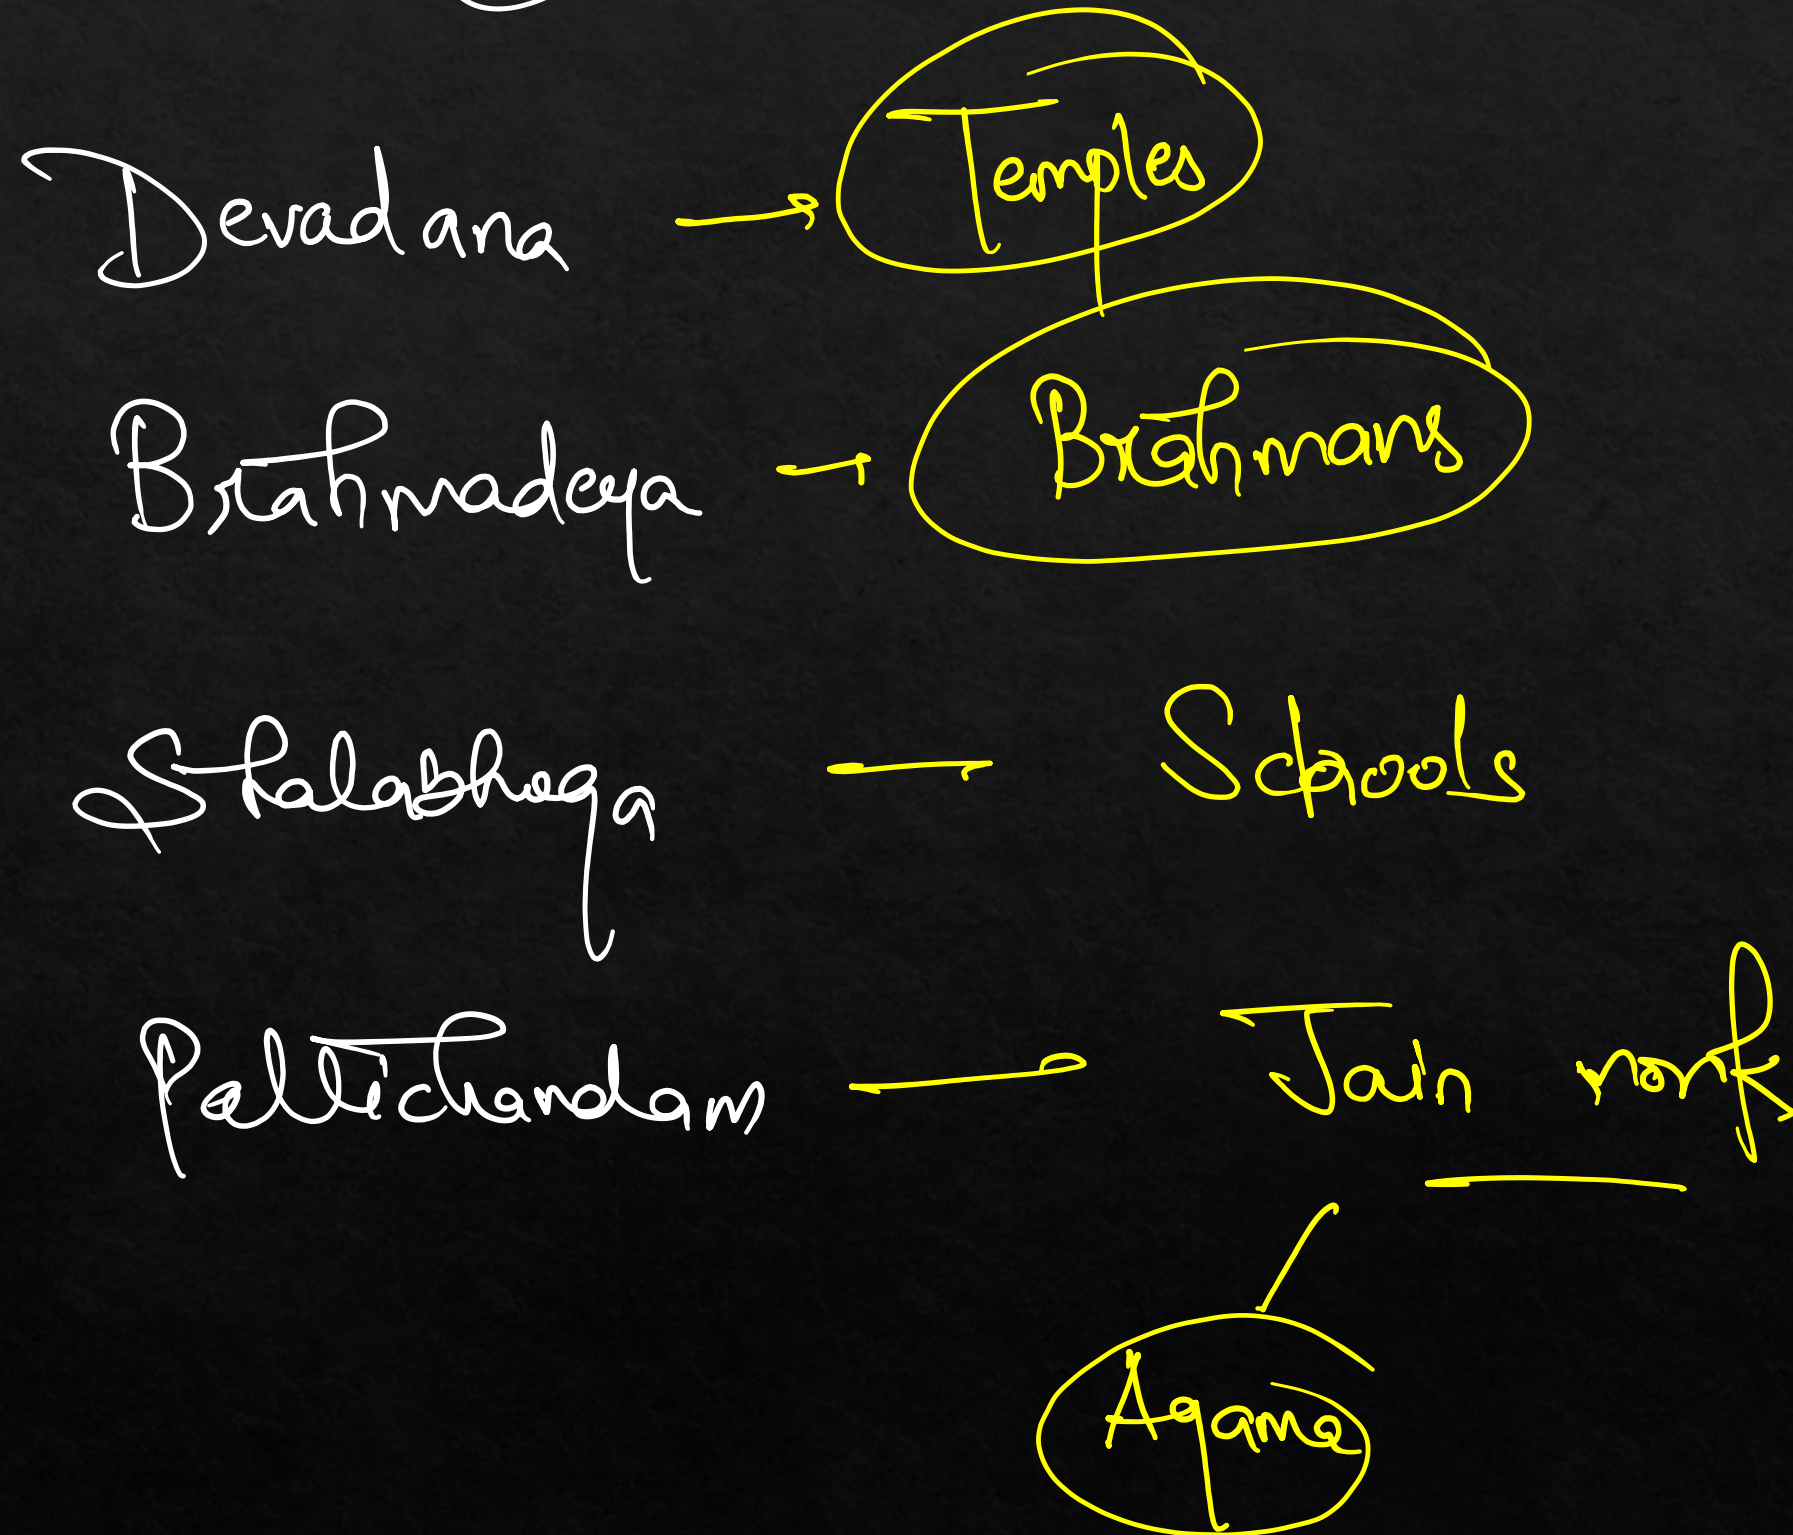 Devadana → Temples
Brahmadeya → Brahmans
Shalabhoga — Schools
Pallichandam — Jain monk
Agama